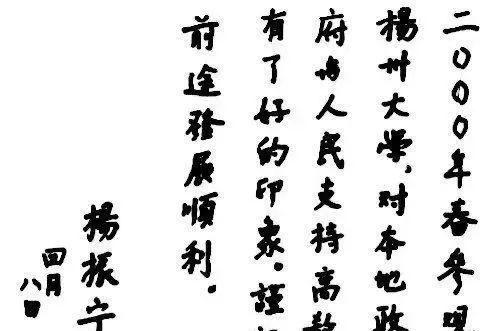 二000年春参观
楊州大学，对本地政
府与人民支持高教
有了好的印象。謹
前途發展順利。
楊振宁
四月
八日